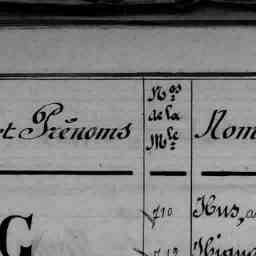 et Prénoms
Nos
de la
Mle
Nom
710
Hus,
G